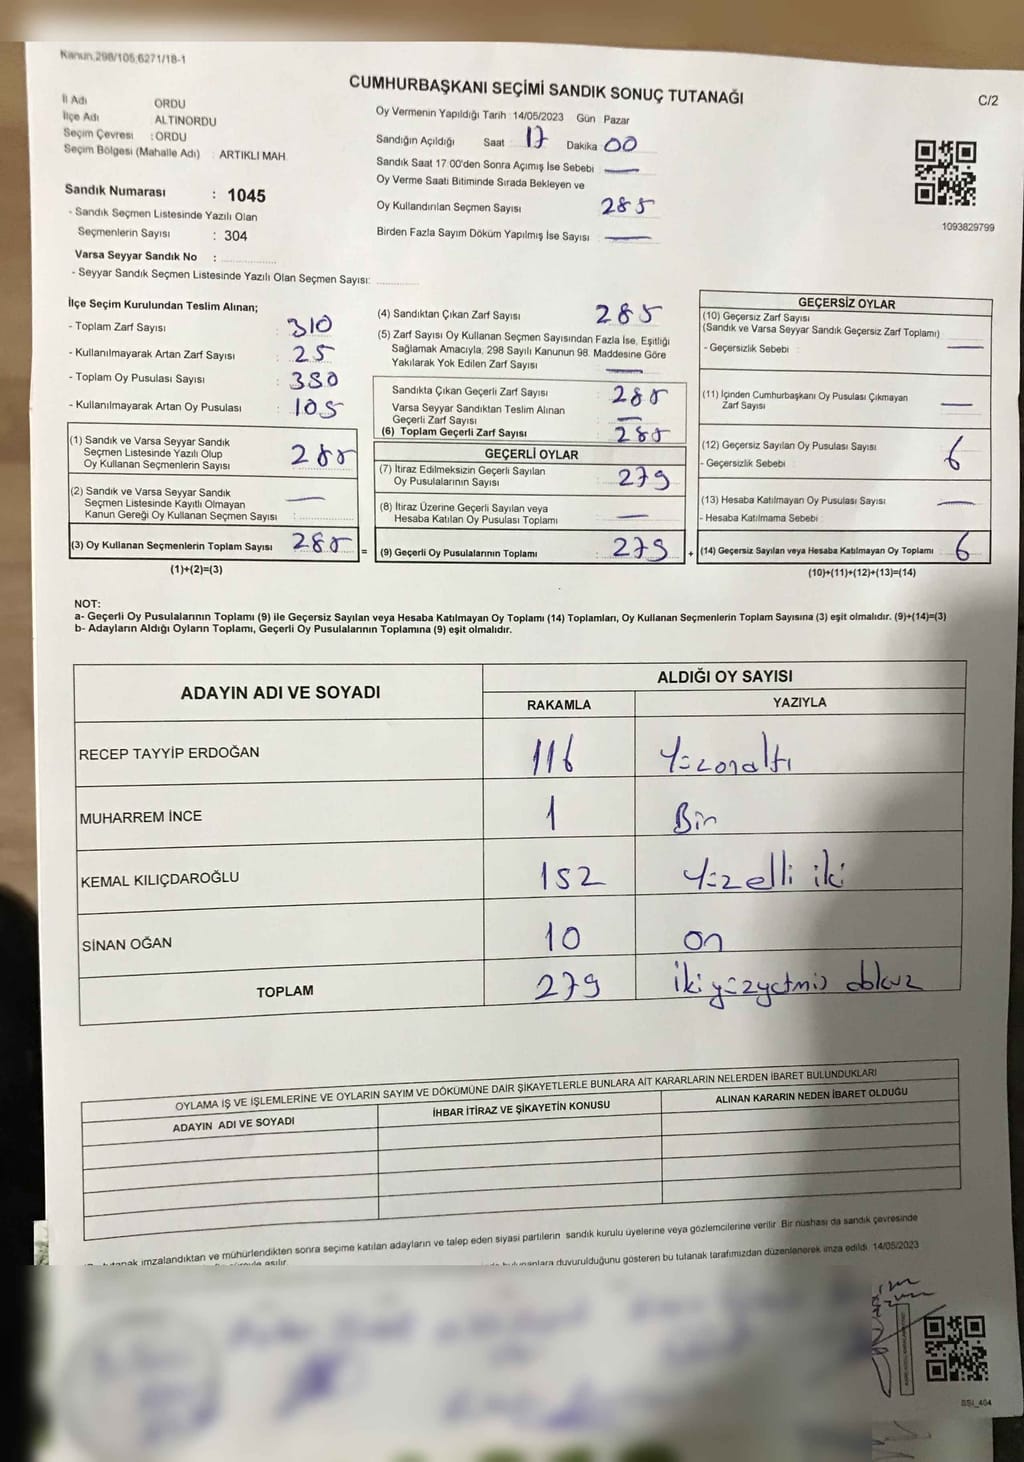 Kanun.298/105;6271/18-1
CUMHURBAŞKANI SEÇİMİ SANDIK SONUÇ TUTANAĞI
C/2
İl Adı ORDU
İlçe Adı ALTINORDU
Seçim Çevresi : ORDU
Seçim Bölgesi (Mahalle Adı) : ARTIKLI MAH.
Oy Vermenin Yapıldığı Tarih 14/05/2023 Gün Pazar
Sandığın Açıldığı Saat 17 Dakika 00
Sandık Saat 17.00'den Sonra Açımış İse Sebebi : —
Oy Verme Saati Bitiminde Sırada Bekleyen ve
Oy Kullandırılan Seçmen Sayısı 285
Birden Fazla Sayım Döküm Yapılmış İse Sayısı —
1093829799
Sandık Numarası : 1045
- Sandık Seçmen Listesinde Yazılı Olan
Seçmenlerin Sayısı : 304
Varsa Seyyar Sandık No :
- Seyyar Sandık Seçmen Listesinde Yazılı Olan Seçmen Sayısı:
İlçe Seçim Kurulundan Teslim Alınan;
- Toplam Zarf Sayısı : 310
- Kullanılmayarak Artan Zarf Sayısı : 25
- Toplam Oy Pusulası Sayısı :
- Kullanılmayarak Artan Oy Pusulası : 105
(1) Sandık ve Varsa Seyyar Sandık
Seçmen Listesinde Yazılı Olup
Oy Kullanan Seçmenlerin Sayısı 285
(2) Sandık ve Varsa Seyyar Sandık
Seçmen Listesinde Kayıtlı Olmayan
Kanun Gereği Oy Kullanan Seçmen Sayısı : —
(3) Oy Kullanan Seçmenlerin Toplam Sayısı 285
(1)+(2)=(3)
=
(4) Sandıktan Çıkan Zarf Sayısı 285
(5) Zarf Sayısı Oy Kullanan Seçmen Sayısından Fazla İse, Eşitliği
Sağlamak Amacıyla, 298 Sayılı Kanunun 98. Maddesine Göre
Yakılarak Yok Edilen Zarf Sayısı —
Sandıkta Çıkan Geçerli Zarf Sayısı 285
Varsa Seyyar Sandıktan Teslim Alınan
Geçerli Zarf Sayısı —
(6) Toplam Geçerli Zarf Sayısı 285
GEÇERLİ OYLAR
(7) İtiraz Edilmeksizin Geçerli Sayılan
Oy Pusulalarının Sayısı 279
(8) İtiraz Üzerine Geçerli Sayılan veya
Hesaba Katılan Oy Pusulası Toplamı —
(9) Geçerli Oy Pusulalarının Toplamı : 279
+
GEÇERSİZ OYLAR
(10) Geçersiz Zarf Sayısı
(Sandık ve Varsa Seyyar Sandık Geçersiz Zarf Toplamı)
- Geçersizlik Sebebi : —
(11) İçinden Cumhurbaşkanı Oy Pusulası Çıkmayan
Zarf Sayısı —
(12) Geçersiz Sayılan Oy Pusulası Sayısı 6
- Geçersizlik Sebebi :
(13) Hesaba Katılmayan Oy Pusulası Sayısı —
- Hesaba Katılmama Sebebi :
(14) Geçersiz Sayılan veya Hesaba Katılmayan Oy Toplamı : 6
(10)+(11)+(12)+(13)=(14)
NOT:
a- Geçerli Oy Pusulalarının Toplamı (9) ile Geçersiz Sayılan veya Hesaba Katılmayan Oy Toplamı (14) Toplamları, Oy Kullanan Seçmenlerin Toplam Sayısına (3) eşit olmalıdır. (9)+(14)=(3)
b- Adayların Aldığı Oyların Toplamı, Geçerli Oy Pusulalarının Toplamına (9) eşit olmalıdır.
ADAYIN ADI VE SOYADI
ALDIĞI OY SAYISI
RAKAMLA YAZIYLA
RECEP TAYYİP ERDOĞAN 116 Yüzonaltı
MUHARREM İNCE 1 Bir
KEMAL KILIÇDAROĞLU 152 Yüzelli iki
SİNAN OĞAN 10 on
TOPLAM 279 İkiyüzyetmiş dokuz
OYLAMA İŞ VE İŞLEMLERİNE VE OYLARIN SAYIM VE DÖKÜMÜNE DAİR ŞİKAYETLERLE BUNLARA AİT KARARLARIN NELERDEN İBARET BULUNDUKLARI
ADAYIN ADI VE SOYADI İHBAR İTİRAZ VE ŞİKAYETİN KONUSU ALINAN KARARIN NEDEN İBARET OLDUĞU
tutanak imzalandıktan ve mühürlendikten sonra seçime katılan adayların ve talep eden siyasi partilerin sandık kurulu üyelerine veya gözlemcilerine verilir. Bir nüshası da sandık çevresinde
asılır. duyurulduğunu gösteren bu tutanak tarafımızdan düzenlenerek imza edildi. 14/05/2023